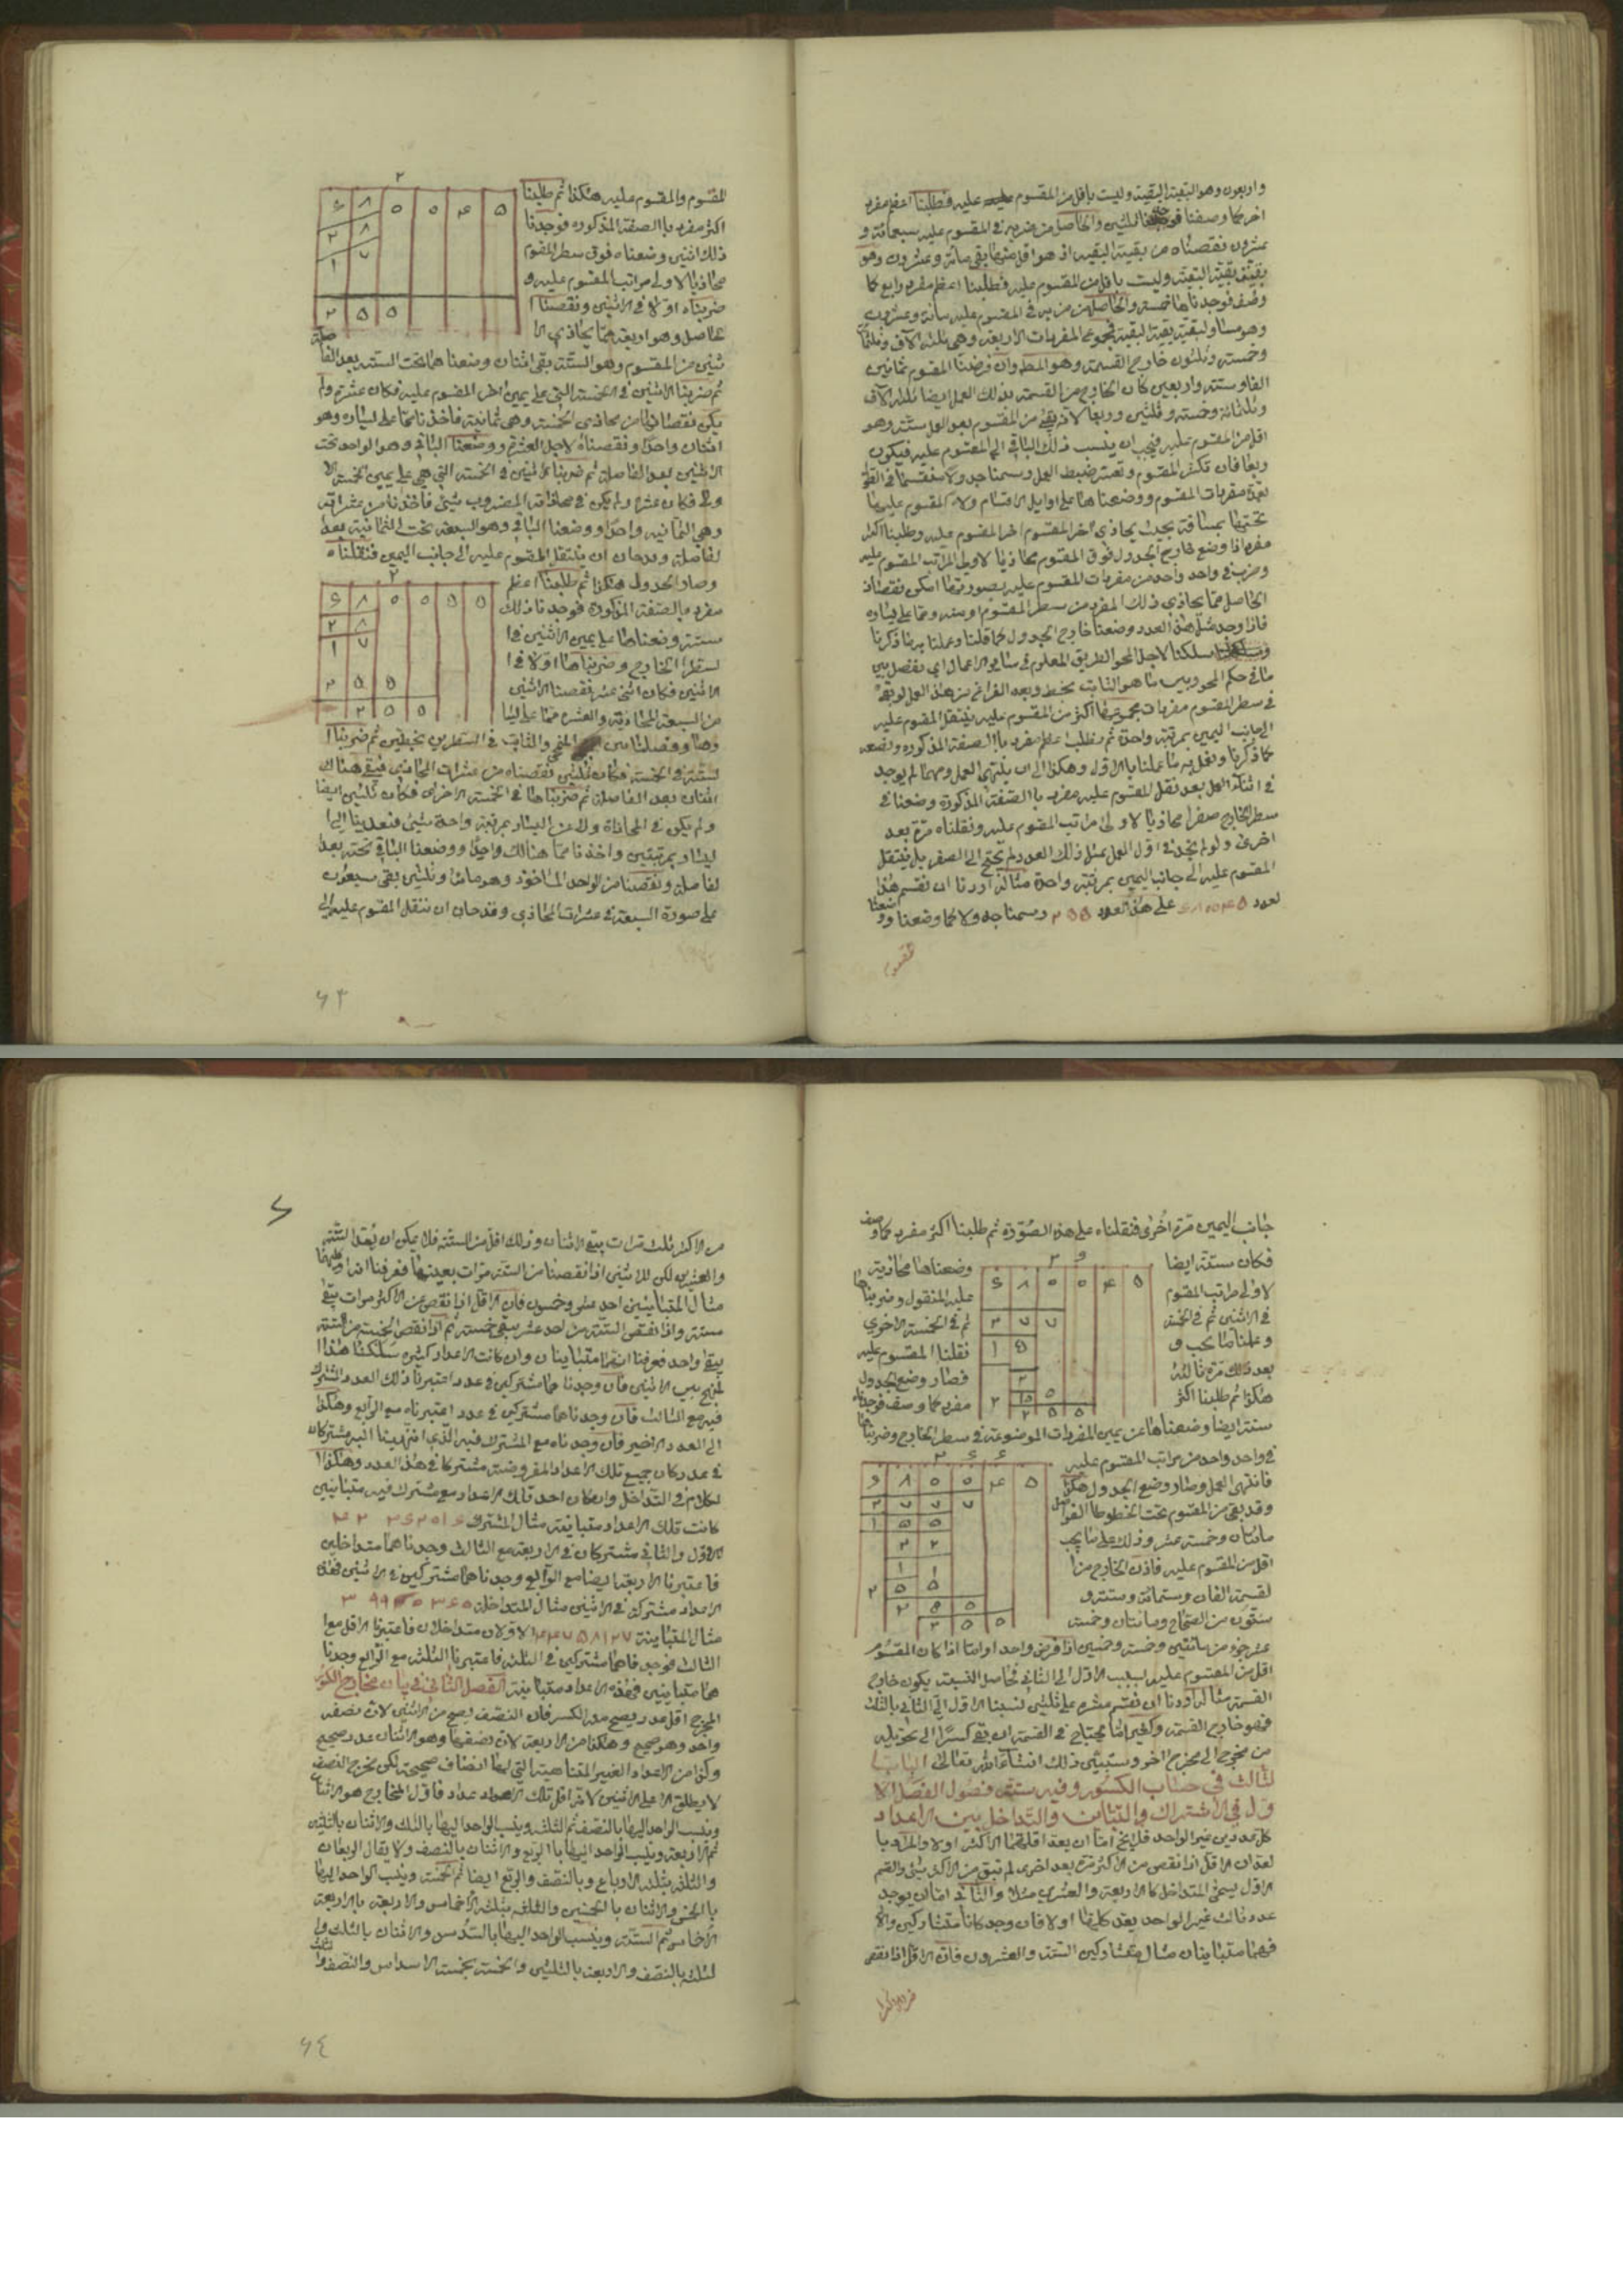 واربعون وهو البقية البقية وليست باقل من المقسوم عليه فطلبنا اعظم مفرد
اخر كما وصفنا فوجدنا الثلثين والحاصل من ضربه في المقسوم عليه سبعمائة و
عشرون نقصناه من بقية البقية اذ هو اقل منها بقى مائة وعشرون وهو
بقية بقية البقية وليست باقل من المقسوم عليه فطلبنا اعظم مفرد رابع كما
وصف فوجدناها خمسة والحاصل من ضربه في المقسوم عليه مائة وعشرون
وهو مساو لبقية بقية البقية فمجموع المفردات الاربعة وهي ثلثة الاف وثلثمائة
وخمسة وثلثون خارج القسمة وهو المط وان فرضنا المقسوم ثمانين
الفا وستة واربعين كان الخارج من القسمة بذلك العمل ايضا ثلثة الاف
وثلثمائة وخمسة وثلثين وربعا لانه بقى من المقسوم بعد العمل ستة وهو
اقل من المقسوم عليه فيجب ان ينسب ذلك الباقي الى المقسوم عليه فيكون
ربعا فان تكثر المقسوم وتعسر ضبط العمل رسمنا جدولا منقسما في الطول
بعدة مفردات المقسوم ووضعناها على اوايل الاقسام ولاء المقسوم عليه
تحتها بمسافة بحيث يحاذي اخر المقسوم اخر المقسوم عليه وطلبنا اكثر
مفرد اذا وضع خارج الجدول فوق المقسوم محاذيا لاولى المراتب المقسوم عليه
وضرب في واحد واحد من مفردات المقسوم عليه بصورتها امكن نقصان
الحاصل مما يحاذي ذلك المفرد من سطر المقسوم او منه ومما على يساره
فاذا وجد مثل هذا العدد وضعنا خارج الجدول كما قلنا وعملنا به ما ذكرنا
وسلكنا لاجل المحو الطريق المعلوم في ساير الاعمال اي نفصل بين
ما في حكم المحو وبين ما هو الثابت بخط وبعد الفراغ من هذا العمل لو بقى
في سطر المقسوم مفردات مجموعها اكثر من المقسوم عليه ينتقل المقسوم عليه
الى جانب اليمين بمرتبة واحدة ثم نطلب اعظم مفرد بالصفة المذكورة ونضعه
كما ذكرنا ونعمل به ما عملنا بالاول وهكذا الى ان ينتهي العمل ومهما لم يوجد
في اثناء العمل بعد نقل المقسوم عليه مفرد بالصفة المذكورة وضعنا في
سطر الخارج صفرا محاذيا لاولى مراتب المقسوم عليه ونقلناه مرة بعد
اخرى ولو لم يوجد في اول العمل بمثل ذلك العدد لم يحتج الى الصفر بل ينتقل
المقسوم عليه الى جانب اليمين بمرتبة واحدة مثاله اردنا ان نقسم هذا
لعدد على هذا العدد ٢٥٥ رسمنا جدولا كما وضعنا ووضعنا
مقسوم
٢
٦ ٨ ٥ ٥ ٤ ٥
٢ ٨
١ ٧
٢ ٥ ٥
المقسوم والمقسوم عليه هكذا ثم طلبنا
اكثر مفرد باالصفة المذكورة فوجدنا
ذلك اثنين وضعناه فوق سطر المقسوم
محاذيا لاولى مراتب المقسوم عليه و
ضربناه اولا في الاثنين ونقصنا ا
لحاصل وهو اربعة مما يحاذي الا
ثنين من المقسوم وهو الستة بقى اثنان وضعناهما تحت الستة بعد الفاصلة
ثم ضربنا الاثنين في الخمسة التي على يمين اخر المقسوم عليه فكان عشرة ولم
يكن نقصانها من محاذي الخمسة وهي ثمانية فاخذنا مما على يساره وهو
اثنان واحدا ونقصناه لاجل العشرة ووضعنا الباقي وهو الواحد تحت
الاثنين بعد الفاصلة ثم ضربنا الاثنين في الخمسة التي هي على يمين الخمسة الا
ولى فكان عشرة ولم يكن في محاذاة المضروب شيئ فاخذنا من عشراته
وهي الثمانية واحدا ووضعنا الباقي وهو السبعة تحت الثمانية بعد ا
لفاصلة وقد حان ان ينتقل المقسوم عليه الى جانب اليمين فنقلناه
٢
٦ ٨ ٥ ٥ ٥ ٥
٢ ٨
١ ٧
٢ ٥ ٥
٢ ٥ ٥
وصار الجدول هكذا ثم طلبنا اعظم
مفرد بالصفة المذكورة فوجدنا ذلك
ستة وضعناها على يمين الاثنين في ا
لسطر الخارج وضربناها اولا في ا
لاثنين فكان اثنى عشر نقصنا الاثنين
من السبعة المحاذية والعشرة مما على يسا
رها وفصلنا بين المنمحي والثابت في السطرين بخطين ثم ضربنا ا
لستة في الخمسة فكان ثلثين نقصناه من عشرات المحاذي فبقى هناك
اثنان بعد الفاصلة ثم ضربناها في الخمسة الاخرى فكان ثلثين ايضا
ولم يكن في المحاذاة ولا عن اليسار بمرتبة واحدة شيئ فتعدينا الى ا
ليسار بمرتبتين واخذنا مما هنالك واحدا ووضعنا الباقي تحته بعد ا
لفاصلة ونقصنا من الواحد الماخوذ وهو مائة ثلثين بقى سبعون
على صورة السبعة في عشرات المحاذي وقد حان ان ننقل المقسوم عليه الى
٦٣
جانب اليمين مرة اخرى فنقلناه على هذه الصورة ثم طلبنا اكثر مفرد كما وصف
فكان ستة ايضا وضعناها محاذية
لاولى مراتب المقسوم عليه المنقول وضربناها
في الاثنين ثم في الخمسة ثم في الخمسة الاخرى
وعملنا ما يجب و نقلنا المقسوم عليه
بعد ذلك مرة ثالثة فصار وضع الجدول
هكذا ثم طلبنا اكثر مفرد كما وصف فوجدناه
٢ ٦
٦ ٨ ٥ ٥ ٤ ٥
٢ ٧ ٧
١ ٥
٢
٢ ١٥ ٥
٢ ٥ ٥
ستة ايضا وضعناها عن يمين المفردات الموضوعة في سطر الخارج وضربناها
في واحد واحد من مراتب المقسوم عليه
فانتهى العمل وصار وضع الجدول هكذا
وقد بقى من المقسوم تحت الخطوط الفواصل
مائتان وخمسة عشر وذلك على ما يجب
اقل من المقسوم عليه فاذن الخارج من ا
لقسمة الفان وستمائة وستة و
ستون من الصحاح ومائتان وخمسة
٢ ٦ ٦
٦ ٨ ٥ ٥ ٤ ٥
٢ ٧ ٧ ٧
١ ٥ ٥
٢ ٢
١ ١
٢ ٥ ٥
٢ ٥ ٥
٢ ٥ ٥
عشر جزء من مائتين وخمسة وخمسين اذا فرض واحدا واما اذا كان المقسوم
اقل من المقسوم عليه لينسب الاول الى الثاني فحاصل النسبة يكون خارج
القسمة مثاله اردنا ان نقسم عشرة على ثلثين نسبنا الاول الى الثاني بالثلث
فهو خارج القسمة وكثيرا ما يحتاج في القسمة ان بقى كسرا الى تحويله
من مخرج الى مخرج اخر وستبين ذلك انشاء الله تعالى الباب ا
لثالث في حساب الكسور وفيه ستة فصول الفصل الا
ول في الاشتراك والتباين والتداخل بين الاعداد
كل عددين غير الواحد فلا يخ اما ان يعد اقلهما الاكثر اولا والمراد با
لعد ان الاقل اذا نقص من الاكثر مرة بعد اخرى لم يبق من الاكثر شيئ والقسم
الاول يسمى المتداخل كالاربعة والعشرين مثلا والثاني اما ان يوجد
عدد ثالث غير الواحد يعد كليهما اولا فان وجد كانا متشاركين والا
فهما متباينان مثال متشاركين الستة والعشرون فان الاقل اذا نقص
من الاكثر
من الاكثر ثلث مرات يبقى الاثنان وذلك اقل من الستة فلا يمكن ان يعد الستة
والعشرين لكن الاثنين اذا نقصنا من الستة مرات بعينها فعرفنا انه
مثال المتباينين احد عشر وخمسون فان الاقل اذا نقص من الاكثر مرات يبقى
ستة واذا نقص الستة من احد عشر يبقى خمسة ثم اذا نقص الخمسة من الستة
يبقى واحد فعرفنا انهما متباينان وان كانت الاعداد كثيرة سلكنا هذا ا
لمنهج بين الاثنين فان وجدناهما مشتركين في عدد اعتبرنا ذلك العدد المشترك
فيه مع الثالث فان وجدناهما مشتركين في عدد اعتبرناه مع الرابع وهكذا
الى العدد الاخير فان وجدناه مع المشترك فيه الذي انتهينا اليه مشتركان
في عدد كان جميع تلك الاعداد المفروضة مشتركا في هذا العدد وهكذا ا
لكلام في التداخل وان كان احد تلك الاعداد مع مشترك فيه متباينين
كانت تلك الاعداد متباينة مثال المشترك
الاول والثاني مشتركان في الاربعة مع الثالث وجدناهما متداخلين
فاعتبرنا الاربعة ايضا مع الرابع وجدناهما مشتركين في الاثنين فهذه
الاعداد مشتركة في الاثنين مثال المتداخلة
مثال المتباينة الاولان متداخلان فاعتبرنا الاقل مع ا
لثالث فوجدناهما مشتركين في الثلثة فاعتبرنا الثلثة مع الرابع وجدنا
هما متباينين فهذه الاعداد متباينة الفصل الثاني في بيان مخارج الكسور
المخرج اقل عدد يصح منه الكسر فان النصف يصح من الاثنين لان نصفه
واحد وهو صحيح وهكذا من الاربعة لان نصفها وهو الاثنان عدد صحيح
وكذا من الاعداد الغير المتناهية التي لها انصاف صحيحة لكن مخرج النصف
لا يطلق الا على الاثنين لانه اقل تلك الاعداد فاول المخارج هو الاثنان
وينسب الواحد اليها بالنصف ثم الثلثة وينسب الواحد اليها بالثلث والاثنان بالثلثين
ثم الاربعة وينسب الواحد اليها بالربع والاثنان بالنصف ولا يقال الربعان
والثلثة بثلثة الارباع وبالنصف والربع ايضا ثم الخمسة وينسب الواحد اليها
بالخمس والاثنان بالخمسين والثلثة بثلثة الاخماس والاربعة بالاربعة
الاخماس ثم الستة وينسب الواحد اليها بالسدس والاثنان بالثلث وا
لثلثة بالنصف والاربعة بالثلثين والخمسة بخمسة الاسداس والنصف والثلث
٦٤